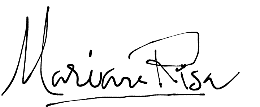 Mariana Risa